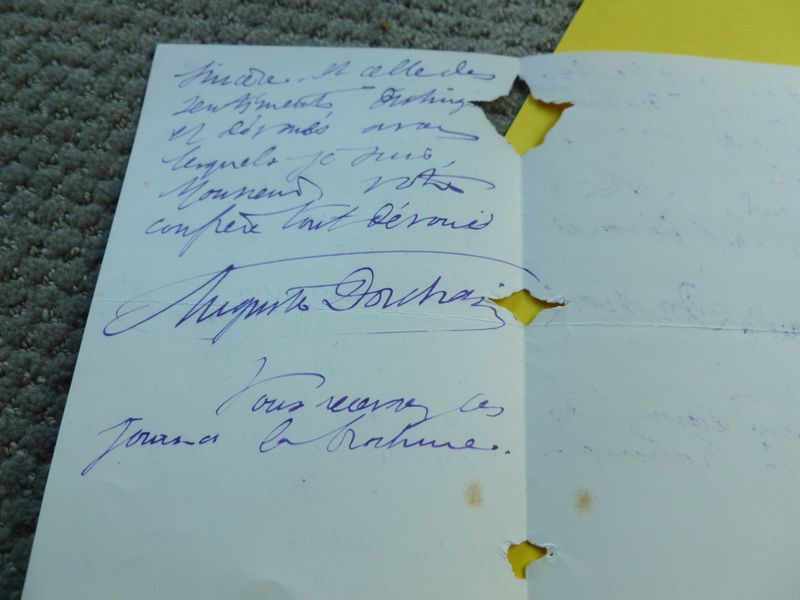 sincère et celle des
sentiments disting
et dévoués avec
lesquels je suis,
Monsieur, votre
confrère tout dévoué
Auguste Dorchain
Vous recevrez ces
jours-ci la brochure.